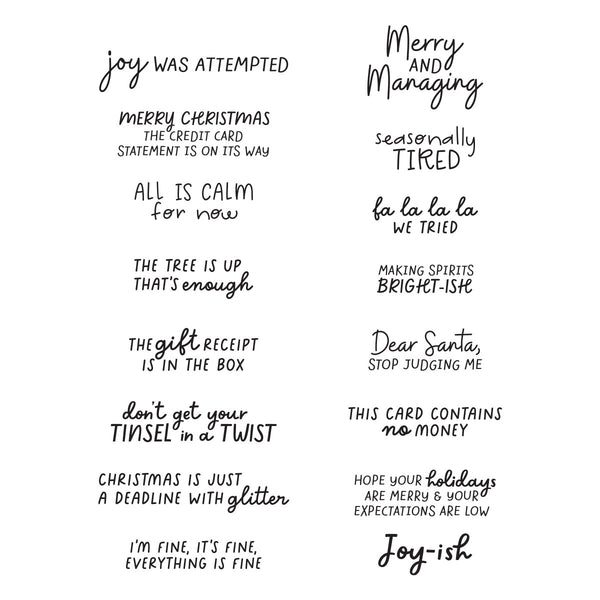 joy WAS ATTEMPTED
MERRY CHRISTMAS
THE CREDIT CARD
STATEMENT IS ON ITS WAY
ALL IS CALM
for now
THE TREE IS UP
THAT'S enough
THE gift RECEIPT
IS IN THE BOX
don't get your
TINSEL in a TWIST
CHRISTMAS IS JUST
A DEADLINE WITH glitter
I'M FINE, IT'S FINE,
EVERYTHING IS FINE
Merry
AND
Managing
seasonally
TIRED
fa la la la la
WE TRIED
MAKING SPIRITS
BRIGHT-ISH
Dear Santa,
STOP JUDGING ME
THIS CARD CONTAINS
no MONEY
HOPE YOUR holidays
ARE MERRY & YOUR
EXPECTATIONS ARE LOW
Joy-ish